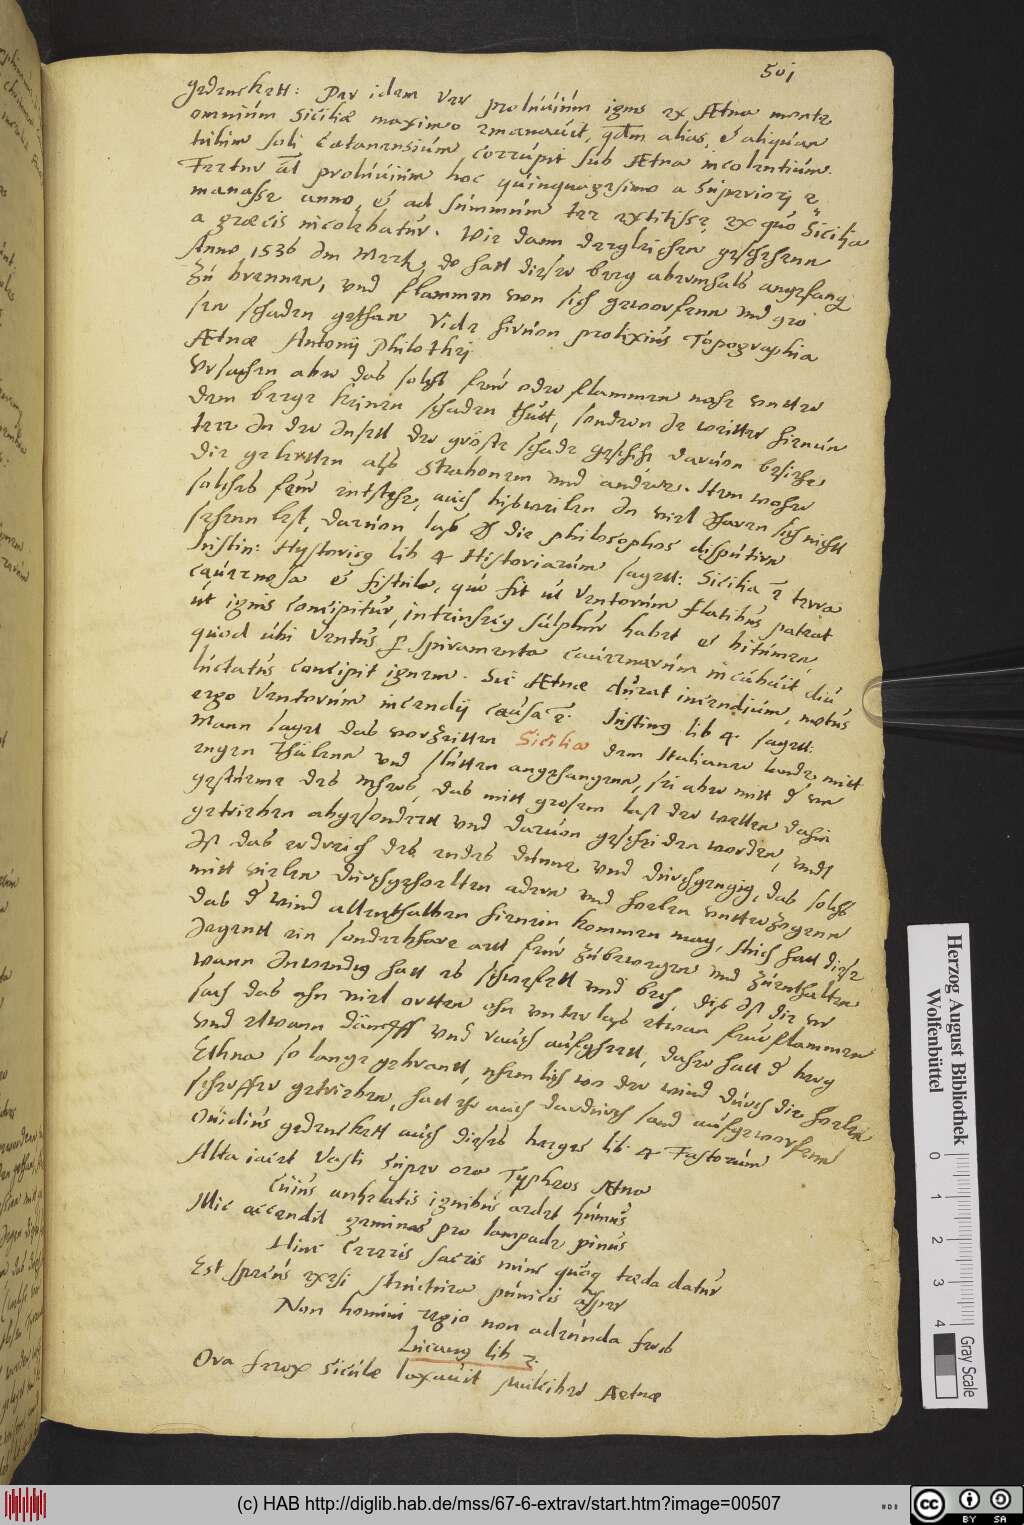 501
gedenckett: Per idem ver proluuium ignis ex Ætna monte
omnium Siciliæ maximo emanauit, qdm alias, et aliquan
tulum soli Catanensium corrupit sub Ætna incolentium.
Fertur at proluuium hoc quinquagesimo a superiorj e
manasse anno, et ad summum ter extitisse, ex quo Sicilia
a græcis incolebatur. Wie dann dergleichen geschehenn
Anno 1536 Im Mertz, do hatt dieser berg abermhals angefang
zu brennen, vnd flammen von sich geworffenn vnd gro
sen schaden gethan Vide hiruon prolixius Topographia
Ætnæ Antonij Philothej
Vrsachen aber das solch feur oder flammen nahe vnter
dem berge keinen schaden thutt, sondern Je weitter hiruun
terr In der Insell der gröste schade geschicht daruon besiehe
die gelertten alss Strabonem vnd andere. Item woher
solches feur entstehe, auch bissweilen In viel Iharen sich nicht
sehenn lest, daruon lass Ich die philosophos disputirn
Justin: Hystoricg lib 4 Historiarum saget: Sicilia e terra
cauernosa et fistula, quo fit ut ventorum flatibus pateat
ut ignis concipitur, intrinsecg sulphur habet et bitumen
quod ubi ventus p spiramenta cauernarum incubuit diu
luctatus concipit ignem. Sic Ætnæ durat incendium, motus
ergo ventorum incendij causa e. Justing lib 4. saget:
Mann saget das vorzeitten Siciliæ dem Italianer lande mitt
engen Thälenn vnd slutten angehangenn, sei aber mitt d vn
gestüme des mehres, das mitt grosem last der wellen dahin
getrieben abgesondertt vnd daruon gescheiden worden, vndt
Ist das erdreich des endes dünne vnd durchgengig, das solchs
mitt vielen durchgeholten adern vnd holen vnterzogenn
das d wind allenthalben hienein kommen mag, Auch hatt diese
Jegentt ein sonderbhare artt feur zubewegen vnd zuenthalten
wann Inwendig hatt es schwefell vnd bech, diss Ist die vr
sach das ahn viel ortten ohn vnterlass etwan feur flammen
vnd etwann dämpff vnd rauch aufghett, daher hatt d berg
Ethna so lange gebrantt, nhemlich wo der wind durch die holen
scherffer getrieben, hatt ehr auch dardurch sand aufgeworfenn
Ouidius gedenckett auch dieses berges lib. 4 Fastorum
Alta iacet vasti super ora Typheos Ætna
Cuius anhelatis ignibus ardet humus
Illic accendit geminas pro lampade pinus
Hinc Cereris sacris nunc quoq tæda datur
Est specus exesi structura pumicis asper
Non homini regio non adeunda feris
Lucang lib 3.
Ora ferox Siculæ laxauit mulciber Aetnæ
Herzog August Bibliothek
Wolfenbüttel
0 1 2 3 4
Gray Scale
(c) HAB http://diglib.hab.de/mss/67-6-extrav/start.htm?image=00507
BY SA